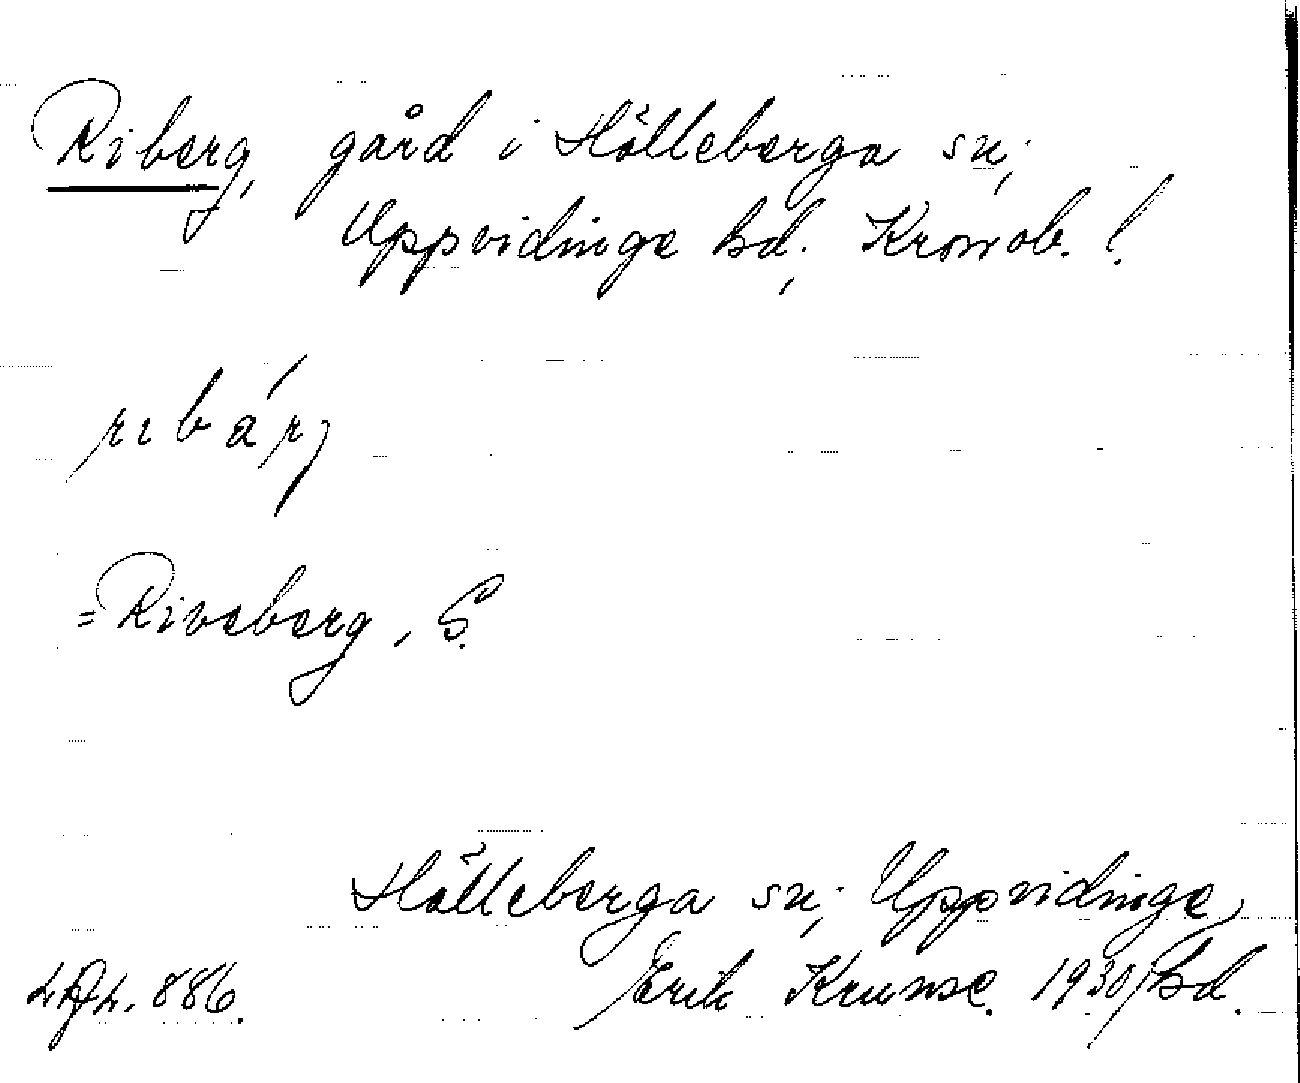 Riberg, gård i Hälleberga sn;
Uppvidinge hd; Kronob. l.
rıbárȷ
= Riveberg, S.
Hälleberga sn; Uppvidinge
Erik Krunse. 1930, hd.
886.